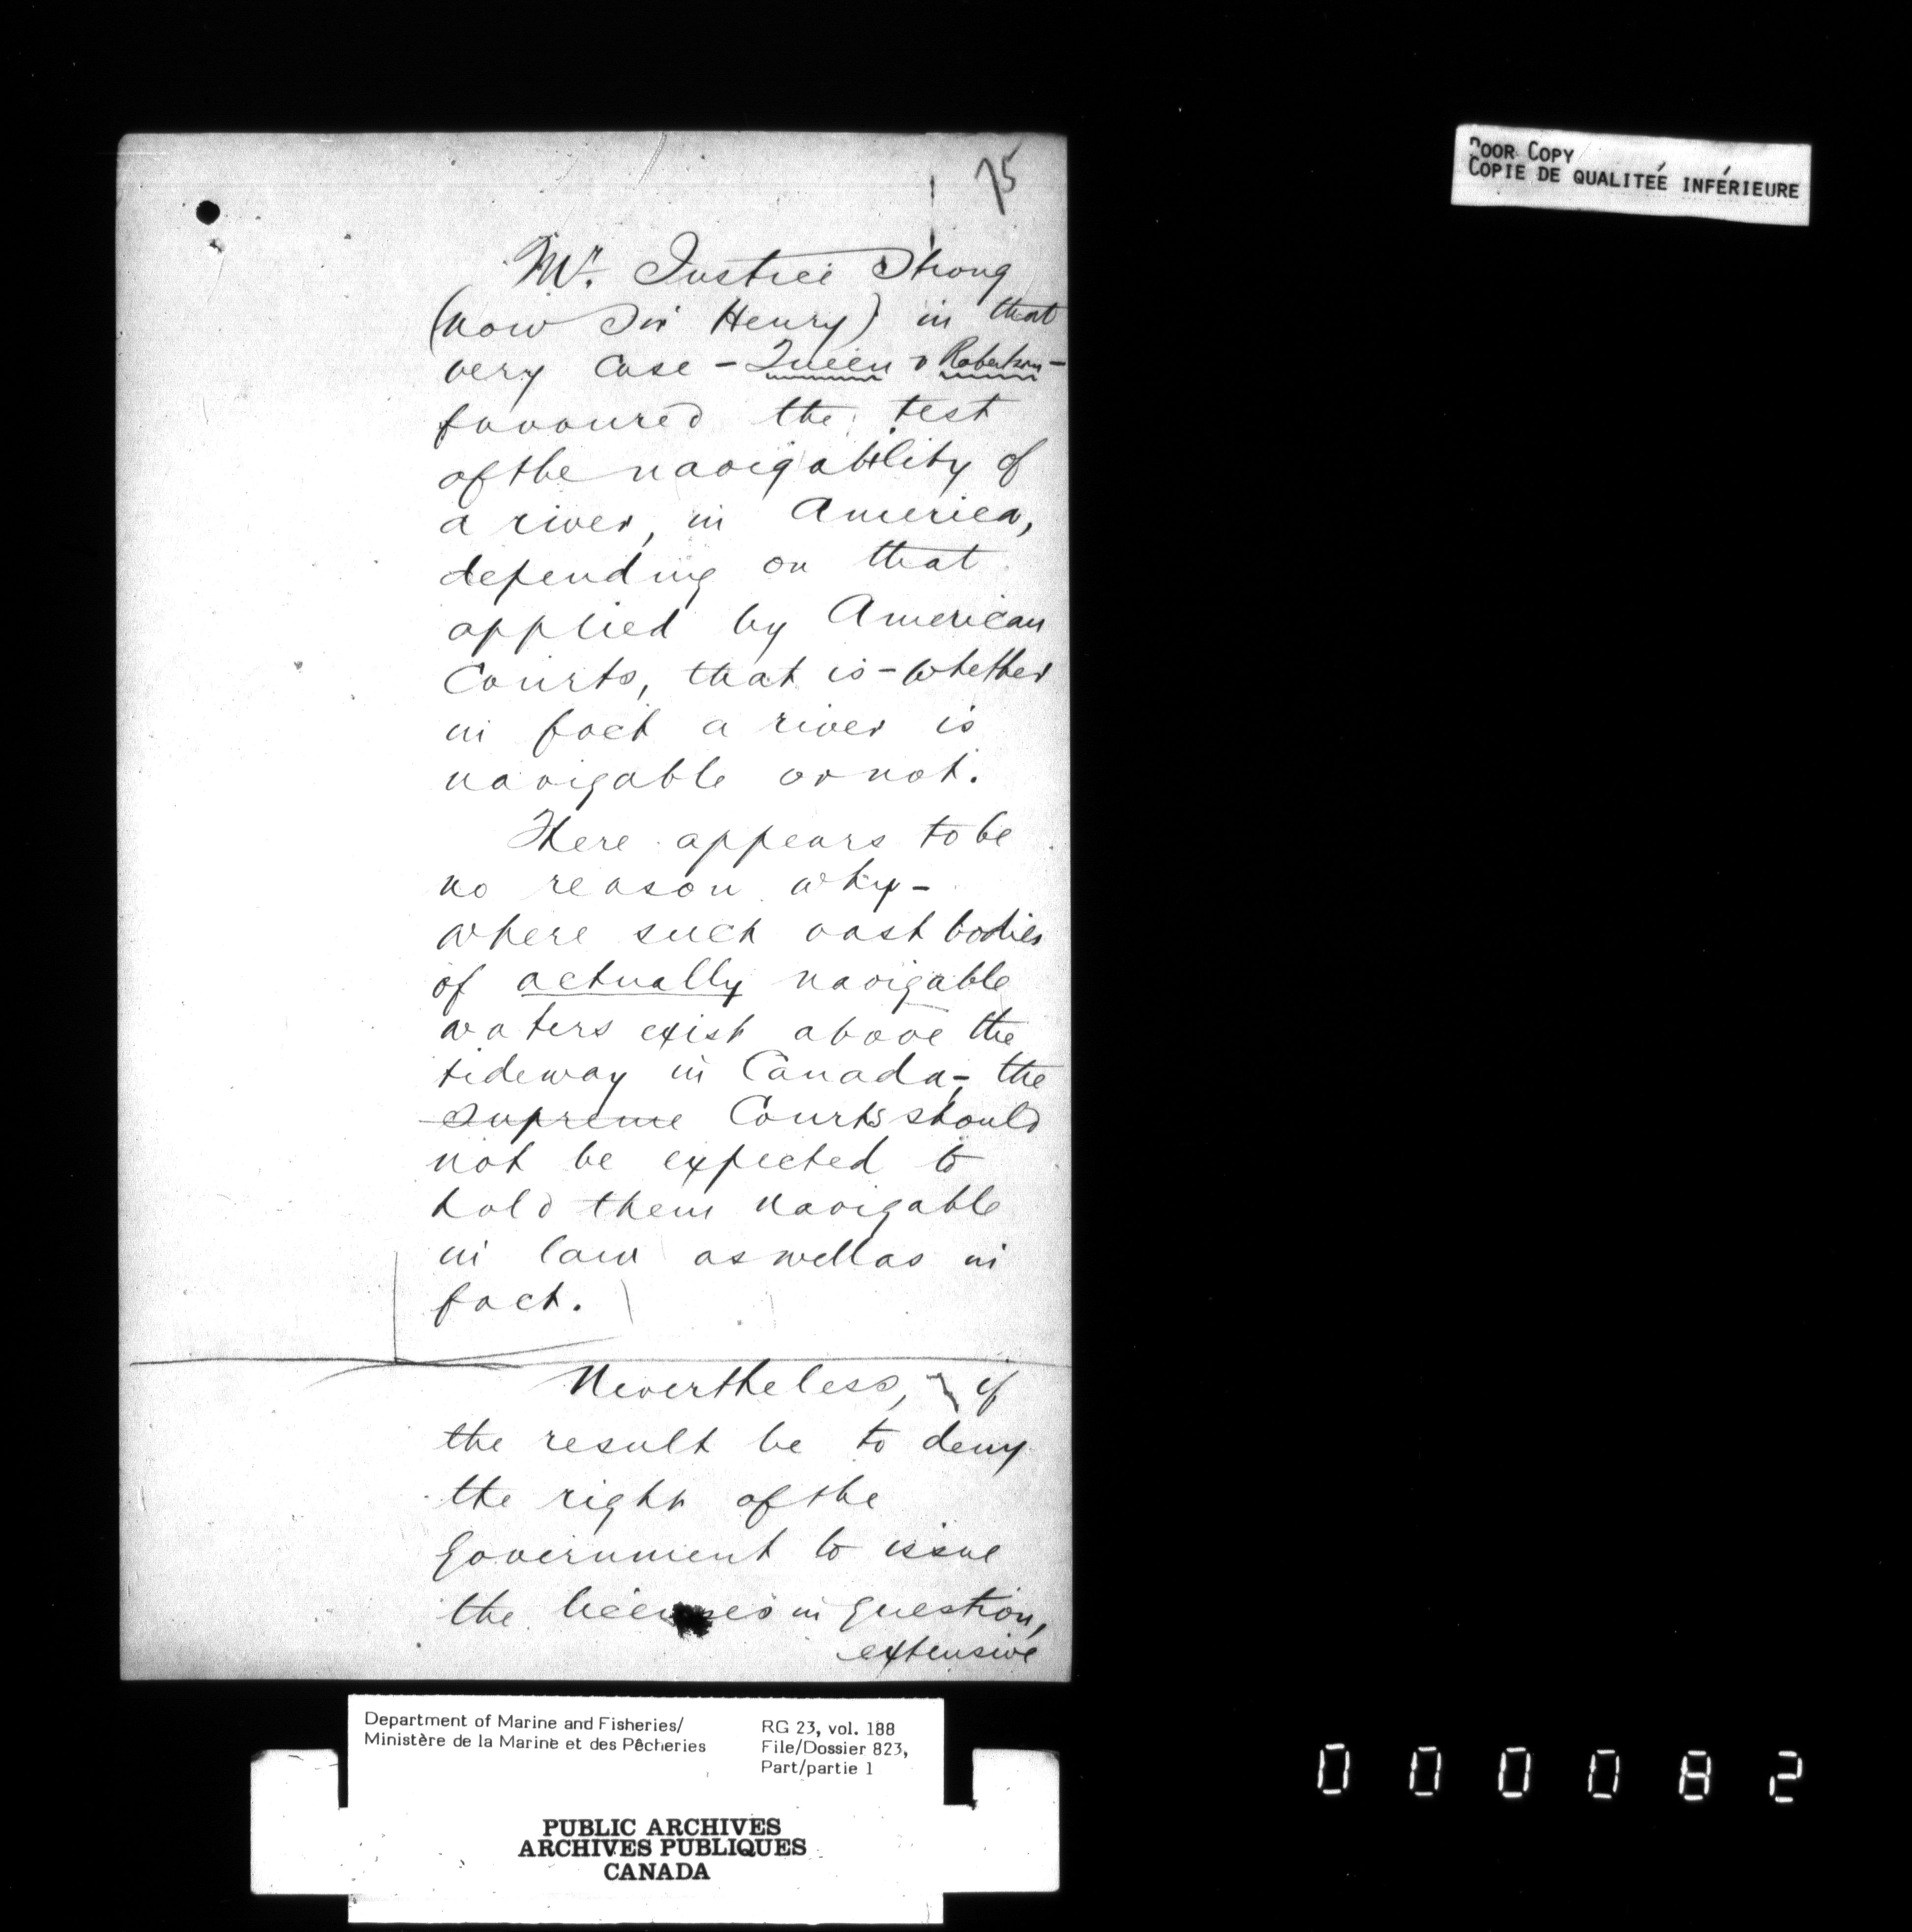 75
Mr. Justice Strong
(now Sir Henry) in that
very case - Queen v Robertson -
favoured the test
of the navigability of
a river, in America,
depending on that
applied by American
Courts, that is - whether
in fact a river is
navigable or not.
There appears to be
no reason why -
where such vast bodies
of actually navigable
waters exist above the
tideway in Canada -, the
Supreme Courts should
not be expected to
hold them navigable
in law as well as in
fact.
Nevertheless, if
the result be to deny
the right of the
Government to issue
the licenses in question,
extensive
POOR COPY
COPIE DE QUALITEÉ INFÉRIEURE
Department of Marine and Fisheries/
Ministère de la Marine et des Pêcheries
RG 23, vol. 188
File/Dossier 823,
Part/partie 1
PUBLIC ARCHIVES
ARCHIVES PUBLIQUES
CANADA
000082